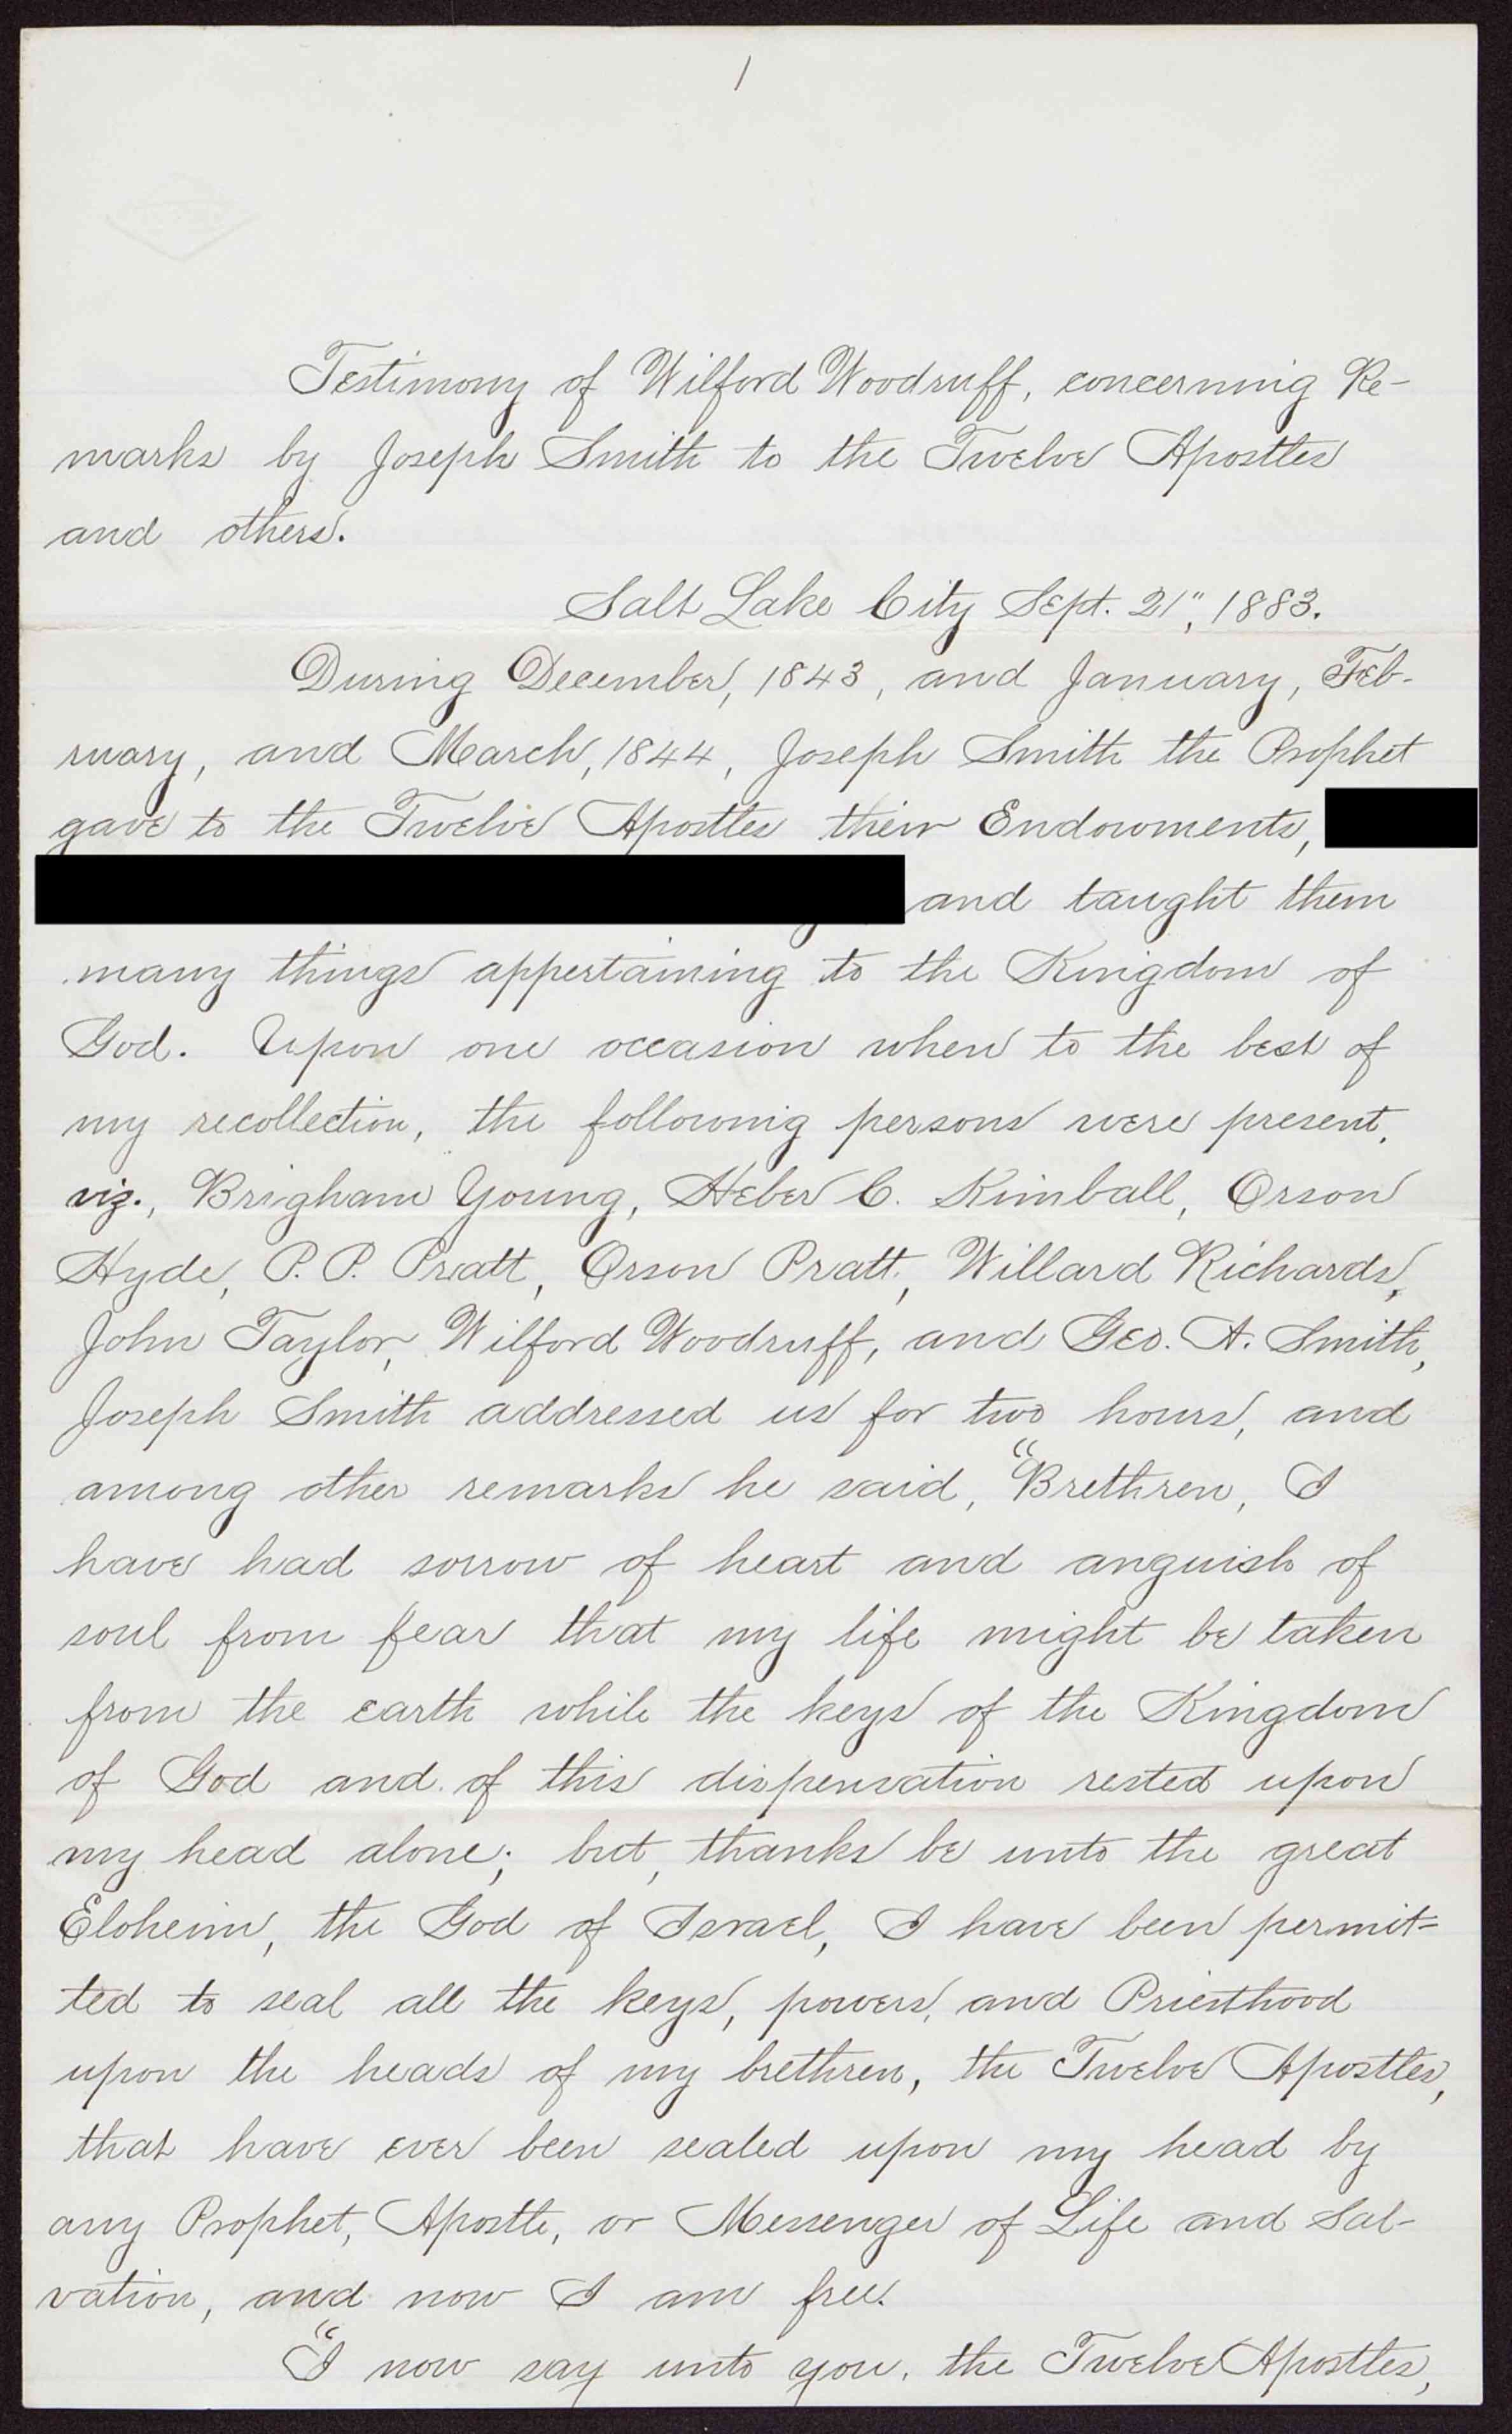 1
Testimony of Wilford Woodruff, concerning Re-
marks by Joseph Smith to the Twelve Apostles
and others.
Salt Lake City Sept. 21", 1883.
During December, 1843, and January, Feb-
ruary, and March, 1844, Joseph Smith the Prophet
gave to the Twelve Apostles their Endowments,
and taught them
many things appertaining to the Kingdom of
God. Upon one occasion when to the best of
my recollection, the following persons were present,
viz., Brigham Young, Heber C. Kimball, Orson
Hyde, P. P. Pratt, Orson Pratt, Willard Richards,
John Taylor, Wilford Woodruff, and Geo. A. Smith,
Joseph Smith addressed us for two hours, and
among other remarks he said, "Brethren, I
have had sorrow of heart and anguish of
soul from fear that my life might be taken
from the earth while the keys of the Kingdom
of God and of this dispensation rested upon
my head alone; but, thanks be unto the great
Eloheim, the God of Israel, I have been permit=
ted to seal all the keys, powers, and Priesthood
upon the heads of my brethren, the Twelve Apostles,
that have ever been sealed upon my head by
any Prophet, Apostle, or Messenger of Life and Sal-
vation, and now I am free.
"I now say unto you, the Twelve Apostles,